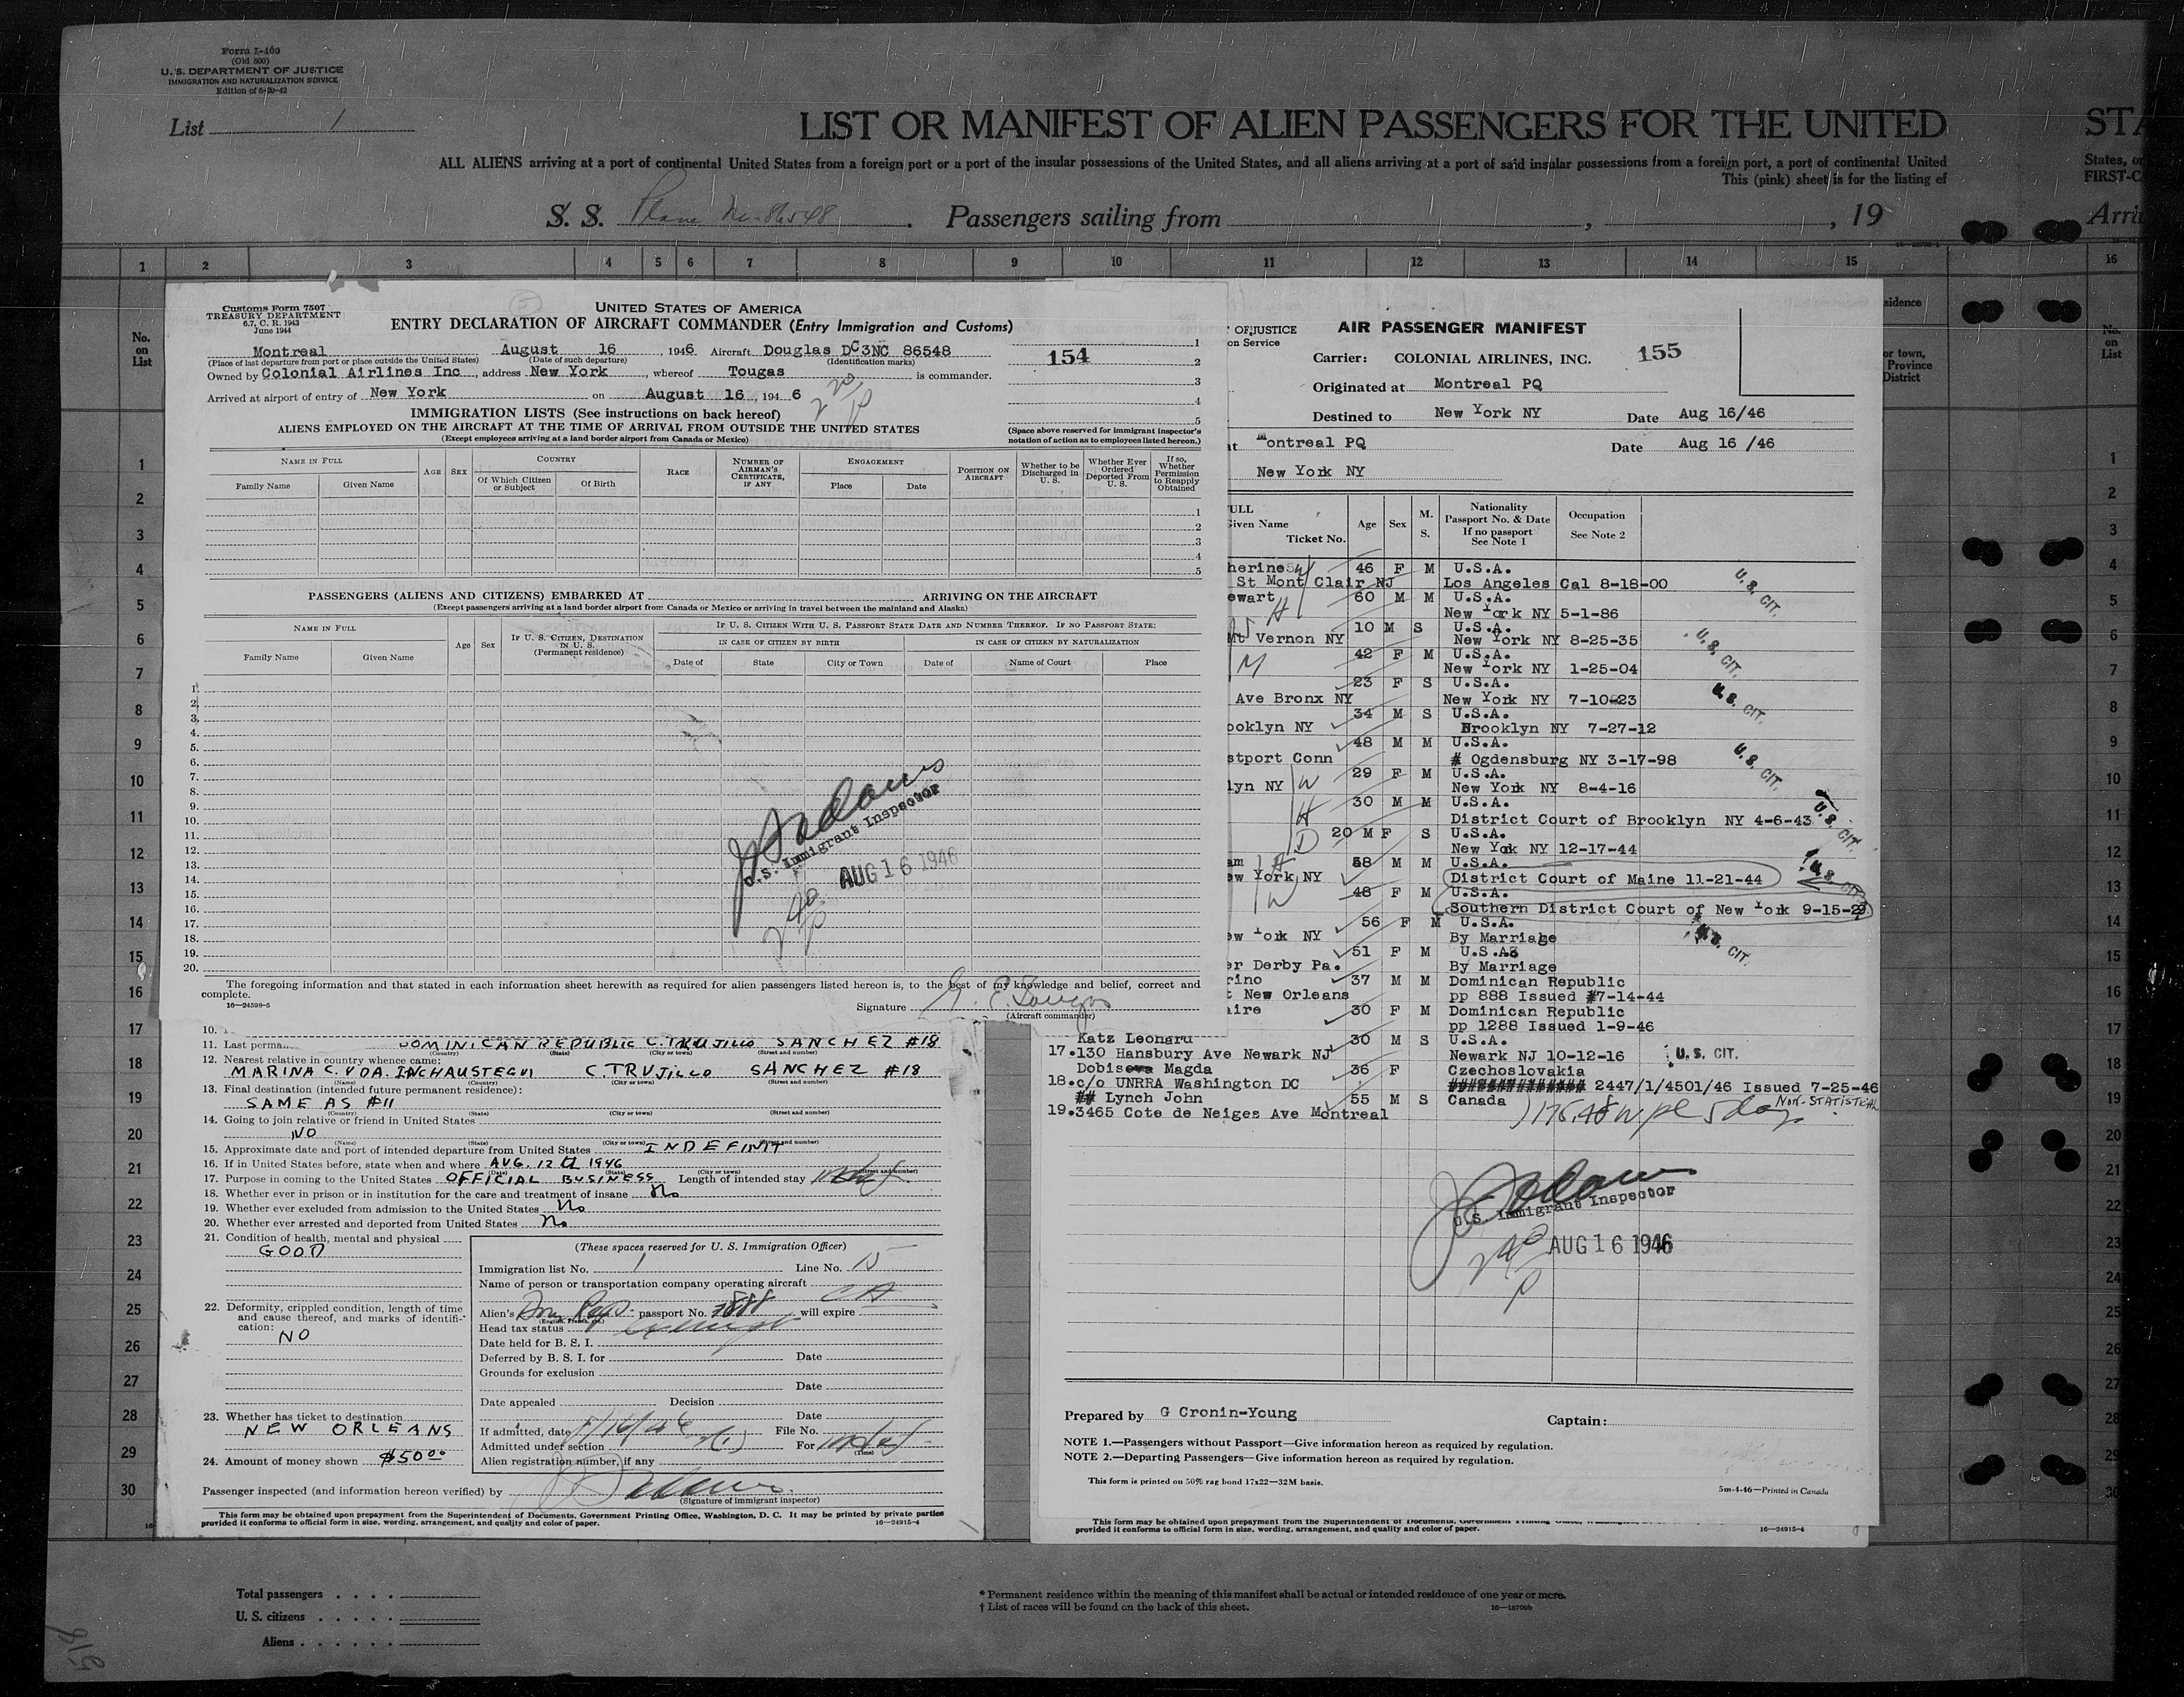 Form I-400
(Old 500)
U. S. DEPARTMENT OF JUSTICE
IMMIGRATION AND NATURALIZATION SERVICE
Edition of 6-20-42
List 1
LIST OR MANIFEST OF ALIEN PASSENGERS FOR THE UNITED
STA
ALL ALIENS arriving at a port of continental United States from a foreign port or a port of the insular possessions of the United States, and all aliens arriving at a port of said insular possessions from a foreign port, a port of continental United
States, or
This (pink) sheet is for the listing of
FIRST-C
S. S. Plane Nc-86548 . Passengers sailing from , , 19
Arri
1 2 3 4 5 6 7 8 9 10 11 12 13 14 15 16
No. on List
Customs Form 7507
TREASURY DEPARTMENT
6.7, C. R. 1943
June 1944
UNITED STATES OF AMERICA
ENTRY DECLARATION OF AIRCRAFT COMMANDER (Entry Immigration and Customs)
Montreal August 16 , 1946 Aircraft Douglas DC3NC 86548
(Place of last departure from port or place outside the United States) (Date of such departure) (Identification marks)
154
Owned by Colonial Airlines Inc , address New York , whereof Tougas is commander.
Arrived at airport of entry of New York on August 16 , 194 6
IMMIGRATION LISTS (See instructions on back hereof)
ALIENS EMPLOYED ON THE AIRCRAFT AT THE TIME OF ARRIVAL FROM OUTSIDE THE UNITED STATES
(Except employees arriving at a land border airport from Canada or Mexico)
1
2
3
4
5
(Space above reserved for immigrant inspector's
notation of action as to employees listed hereon.)
NAME IN FULL
Family Name Given Name
AGE SEX
COUNTRY
Of Which Citizen or Subject Of Birth
RACE
NUMBER OF AIRMAN'S CERTIFICATE, IF ANY
ENGAGEMENT
Place Date
POSITION ON AIRCRAFT
Whether to be Discharged in U. S.
Whether Ever Ordered Deported From U. S.
If so, Whether Permission to Reapply Obtained
1
2
3
4
5
PASSENGERS (ALIENS AND CITIZENS) EMBARKED AT ARRIVING ON THE AIRCRAFT
(Except passengers arriving at a land border airport from Canada or Mexico or arriving in travel between the mainland and Alaska)
NAME IN FULL
Family Name Given Name
Age Sex
IF U. S. CITIZEN, DESTINATION IN U. S. (Permanent residence)
IF U. S. CITIZEN WITH U. S. PASSPORT STATE DATE AND NUMBER THEREOF. IF NO PASSPORT STATE:
IN CASE OF CITIZEN BY BIRTH IN CASE OF CITIZEN BY NATURALIZATION
Date of State City or Town Date of Name of Court Place
1.
2.
3.
4.
5.
6.
7.
8.
9.
10.
11.
12.
13.
14.
15.
16.
17.
18.
19.
20.
U.S. Immigrant Inspector
AUG 16 1946
The foregoing information and that stated in each information sheet herewith as required for alien passengers listed hereon is, to the best of my knowledge and belief, correct and
complete.
16—24598-5
Signature G. E. Tougas
(Aircraft commander)
10.
11. Last perma DOMINICAN REPUBLIC C. TRUJILLO SANCHEZ #18
(Country) (State) (City or town) (Street and number)
12. Nearest relative in country whence came:
MARINA C. VDA. INCHAUSTEGUI C. TRUJILLO SANCHEZ #18
(Name) (Country) (City or town) (Street and number)
13. Final destination (intended future permanent residence):
SAME AS #11
(Country) (State) (City or town) (Street and number)
14. Going to join relative or friend in United States
NO
(Name) (State) (City or town) (Street and number)
15. Approximate date and port of intended departure from United States INDEFINIT
16. If in United States before, state when and where AUG. 12th 1946
(Date) (State) (City or town) (Street and number)
17. Purpose in coming to the United States OFFICIAL BUSINESS Length of intended stay
18. Whether ever in prison or in institution for the care and treatment of insane No
19. Whether ever excluded from admission to the United States No
20. Whether ever arrested and deported from United States No
21. Condition of health, mental and physical
GOOD
22. Deformity, crippled condition, length of time
and cause thereof, and marks of identifi-
cation:
NO
23. Whether has ticket to destination
NEW ORLEANS
24. Amount of money shown $50.00
(These spaces reserved for U. S. Immigration Officer)
Immigration list No. 1 Line No. 15
Name of person or transportation company operating aircraft CA
Alien's Dom Rep passport No. 888 will expire
Head tax status
Date held for B. S. I.
Deferred by B. S. I. for Date
Grounds for exclusion
Date
Date appealed Decision
Date
If admitted, date 8/16/46 File No.
Admitted under section 3(1) For
(Time)
Alien registration number, if any
Passenger inspected (and information hereon verified) by
(Signature of immigrant inspector)
This form may be obtained upon prepayment from the Superintendent of Documents, Government Printing Office, Washington, D. C. It may be printed by private parties
provided it conforms to official form in size, wording, arrangement, and quality and color of paper.
16—24915-4
OF JUSTICE
on Service
AIR PASSENGER MANIFEST
Carrier: COLONIAL AIRLINES, INC. 155
Originated at Montreal PQ
Destined to New York NY Date Aug 16/46
at Montreal PQ Date Aug 16 /46
New York NY
ULL
Given Name Ticket No.
Age Sex M. S.
Nationality Passport No. & Date If no passport See Note 1
Occupation See Note 2
herine 46 F M U.S.A.
St Mont Clair NJ Los Angeles Cal 8-18-00
ewart 60 M M U.S.A.
New York NY 5-1-86
10 M S U.S.A.
Mt Vernon NY New York NY 8-25-35
42 F M U.S.A.
New York NY 1-25-04
23 F S U.S.A.
Ave Bronx NY New York NY 7-10-23
34 M S U.S.A.
ooklyn NY Brooklyn NY 7-27-12
48 M M U.S.A.
stport Conn # Ogdensburg NY 3-17-98
29 F M U.S.A.
lyn NY New York NY 8-4-16
30 M M U.S.A.
District Court of Brooklyn NY 4-6-43
20 M F S U.S.A.
New York NY 12-17-44
am 58 M M U.S.A.
ew York NY District Court of Maine 11-21-44
48 F M U.S.A.
Southern District Court of New York 9-15-29
56 F M U.S.A.
ew York NY By Marriage
51 F M U.S.A3
er Derby Pa. By Marriage
rino 37 M M Dominican Republic
t New Orleans pp 888 Issued #7-14-44
aire 30 F M Dominican Republic
pp 1288 Issued 1-9-46
Katz Leonard 30 M S U.S.A.
17.130 Hansbury Ave Newark NJ Newark NJ 10-12-16 U.S. CIT.
Dobisova Magda 36 F Czechoslovakia
18.c/o UNRRA Washington DC ############### 2447/1/4501/46 Issued 7-25-46
## Lynch John 55 M S Canada NON-STATISTICAL
19.3465 Cote de Neiges Ave Montreal
U.S. CIT.
U.S. CIT.
U.S. CIT.
U.S. CIT.
U.S. CIT.
U.S. CIT.
U.S. CIT.
U.S. Immigrant Inspector
AUG 16 1946
Prepared by G Cronin-Young Captain:
NOTE 1.—Passengers without Passport—Give information hereon as required by regulation.
NOTE 2.—Departing Passengers—Give information hereon as required by regulation.
This form is printed on 50% rag bond 17x22—32M basis.
5m-4-46—Printed in Canada
This form may be obtained upon prepayment from the Superintendent of
provided it conforms to official form in size, wording, arrangement, and quality and color of paper.
16—24915-4
sidence
or town,
Province
District
No. on List
1
2
3
4
5
6
7
8
9
10
11
12
13
14
15
16
17
18
19
20
21
22
23
24
25
26
27
28
29
30
Total passengers . . . .
U. S. citizens . . . . .
Aliens . . . . . .
* Permanent residence within the meaning of this manifest shall be actual or intended residence of one year or more.
† List of races will be found on the back of this sheet.